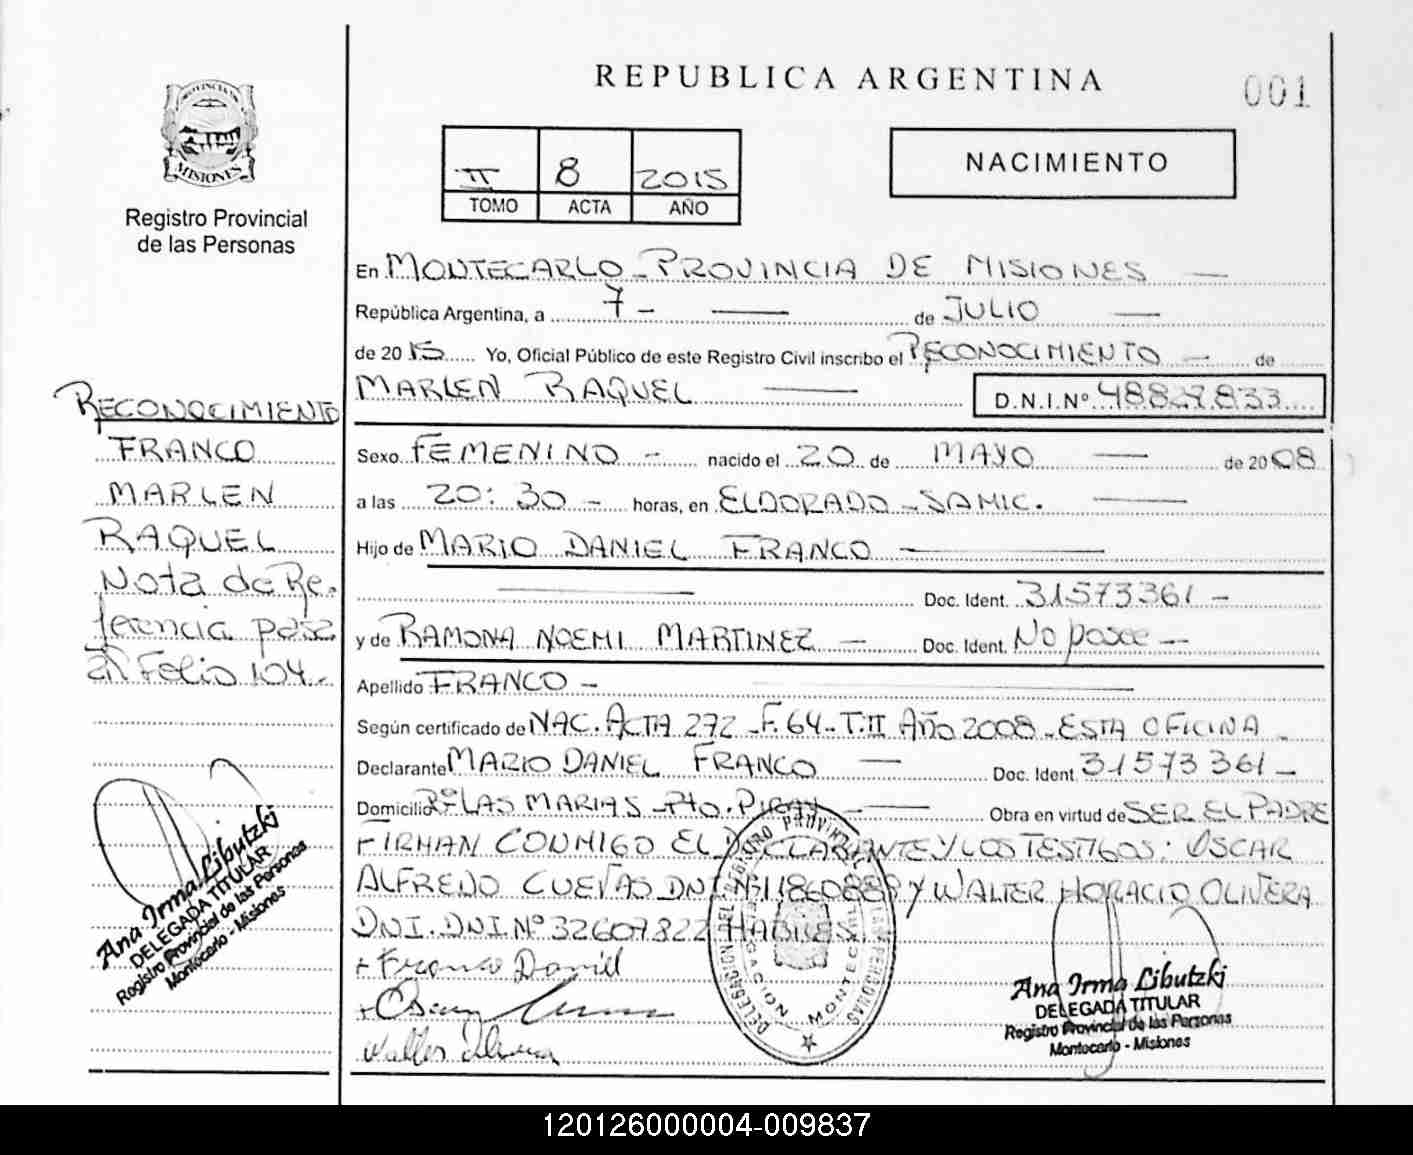 REPUBLICA ARGENTINA
001
PROVINCIA DE
MISIONES
Registro Provincial
de las Personas
II 8 2015
TOMO ACTA AÑO
NACIMIENTO
En MONTECARLO - PROVINCIA DE MISIONES —
República Argentina, a 7 - — de JULIO —
de 2015 Yo, Oficial Público de este Registro Civil inscribo el RECONOCIMIENTO — de
MARLEN RAQUEL — D.N.I.Nº 48827.833
Sexo FEMENINO - nacido el 20 de MAYO — de 2008
a las 20:30 - horas, en ELDORADO - SAMIC. —
Hijo de MARIO DANIEL FRANCO —
— Doc. Ident. 31573361 -
y de RAMONA NOEMI MARTINEZ - Doc. Ident. No posee -
Apellido FRANCO - —
Según certificado de NAC. ACTA 272 - F. 64 - T.II Año 2008 - ESTA OFICINA -
Declarante MARIO DANIEL FRANCO — Doc. Ident. 31573361 -
Domicilio Rº LAS MARIAS - Pto. PIRAY - — Obra en virtud de SER EL PADRE
FIRMAN CONMIGO EL DECLARANTE Y LOS TESTIGOS: OSCAR
ALFREDO CUEVAS DNI Y WALTER HORACIO OLIVERA
DNI. DNI Nº 32607822 HABILES.
+ Franco Daniel
+ Oscar
Walter Olivera
DELEGACION MONTECARLO
Ana Irma Libutzki
DELEGADA TITULAR
Registro Provincial de las Personas
Montecarlo - Misiones
RECONOCIMIENTO
FRANCO
MARLEN
RAQUEL
Nota de Re-
ferencia pasa
en Folio 104.-
Ana Irma Libutzki
DELEGADA TITULAR
Registro Provincial de las Personas
Montecarlo - Misiones
120126000004-009837